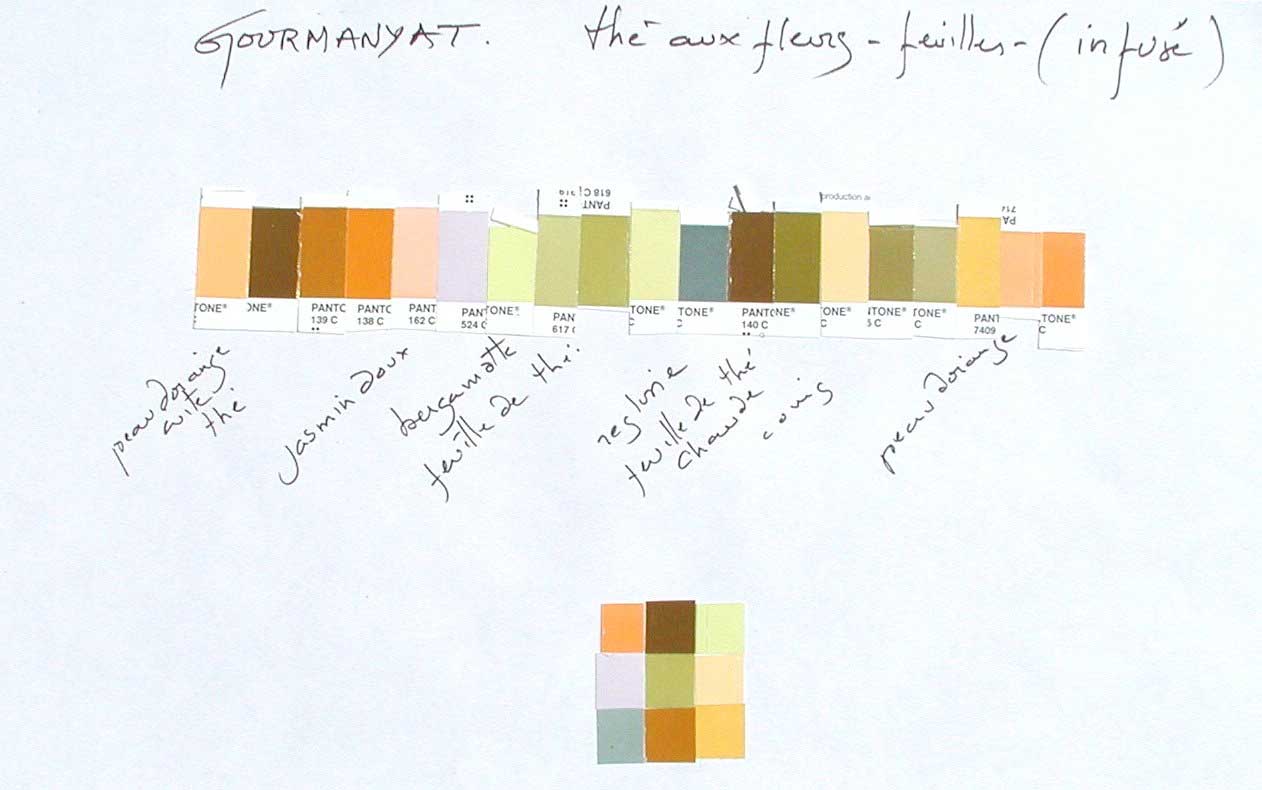 GOURMANYAT. thé aux fleurs - feuilles - (infusé)
618 C
PANT
production a
714
PA
TONE®
ONE®
PANTC
139 C
PANTC
138 C
PANT
162 C
PANT
524 C
TONE®
PAN
617 C
TONE®
C
TONE®
C
PANTO
140 C
NE®
TONE®
C
NTONE®
5 C
TONE®
C
PANT
7409
TONE®
C
peau dorange
cuite
thé
Jasmin doux
bergamotte
feuille de thé.
reglisse
feuille de thé
chaude
coing
peau dorange